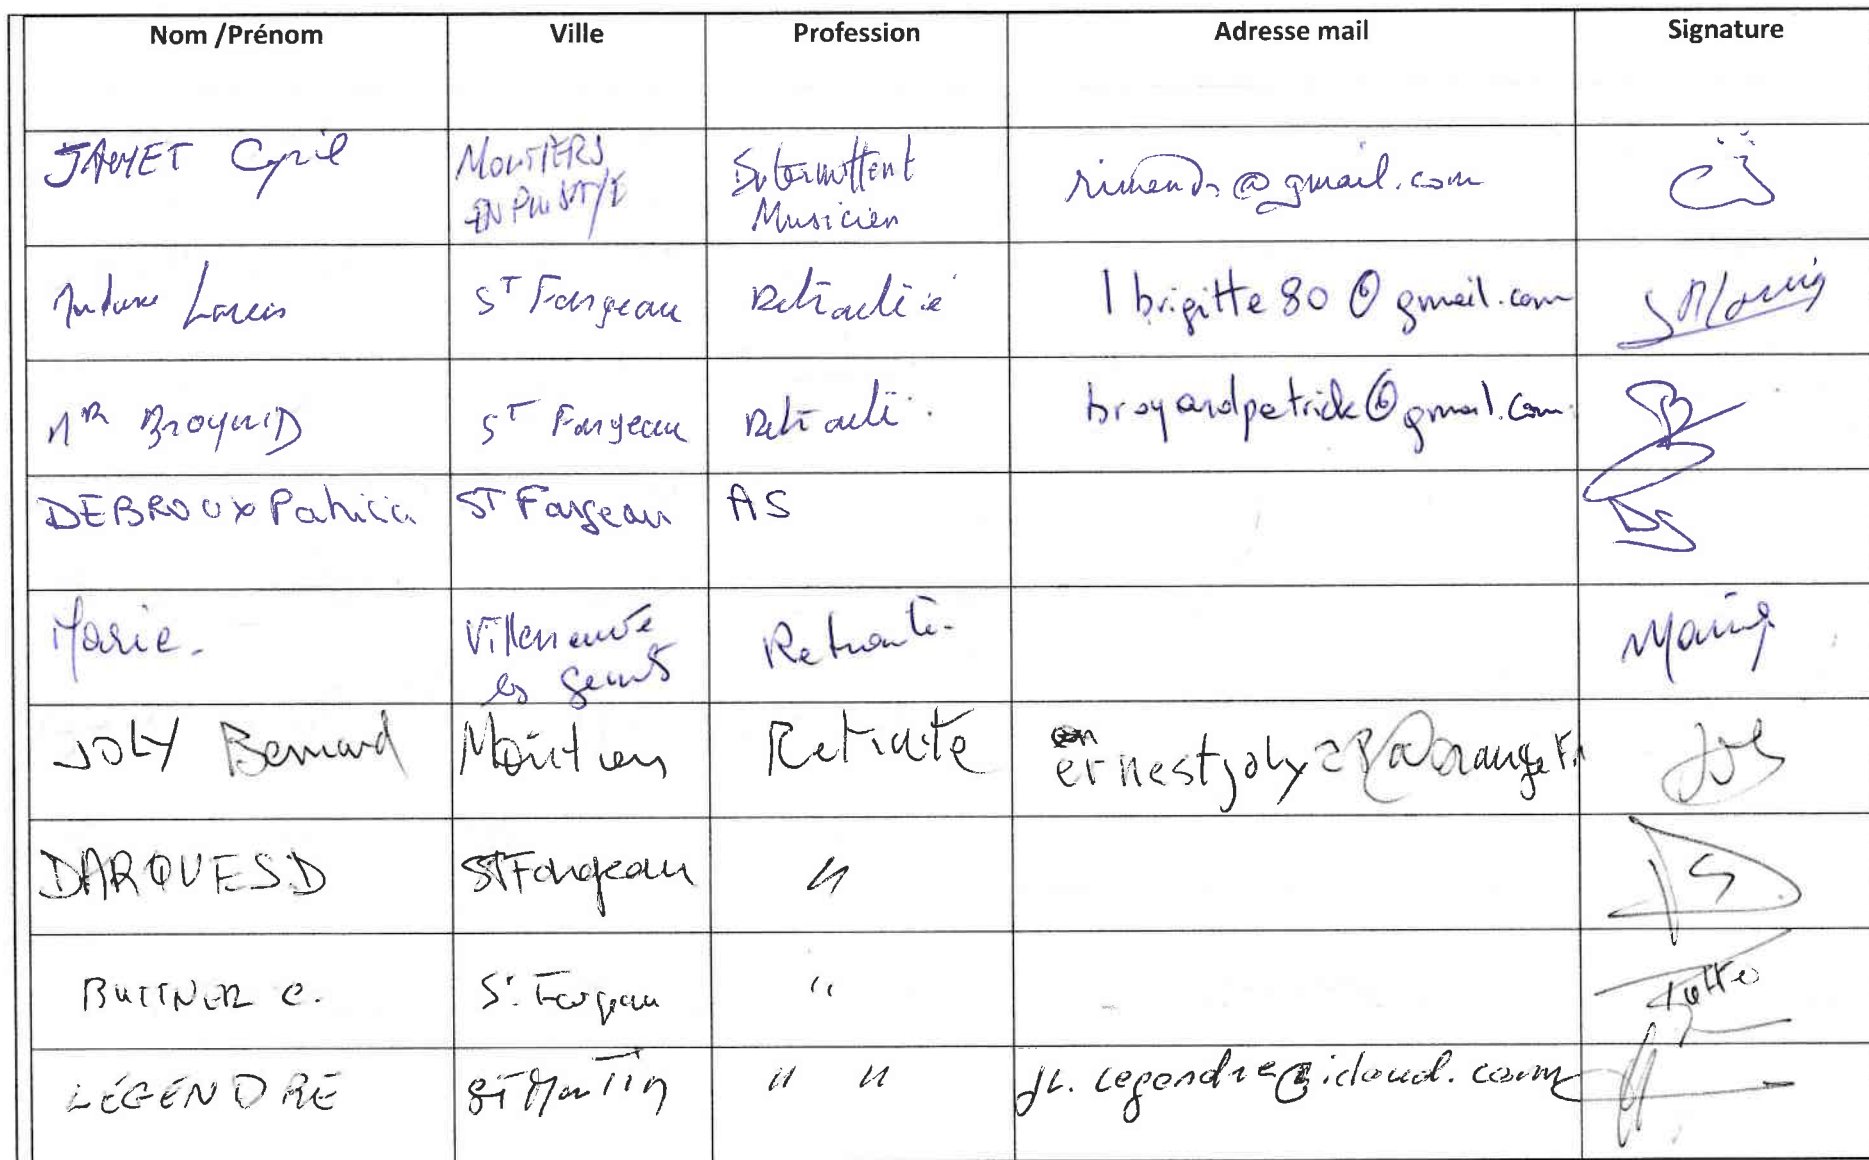 Nom /Prénom Ville Profession Adresse mail Signature
JAMET Cyril MOUTIERS Intermittent rimends@gmail.com
EN PUISAYE Musicien
Madame St Fargeau Retraitée lbrigitte80@gmail.com
Mr BROYARD St Fargeau Retraité. broyardpatrick@gmail.com
DEBROUX Patricia ST Fargeau AS
Marie. Villeneuve Retraité.
les Genets
JOLY Bernard Moutiers Retraite ernestjoly
DARQUES D ST Fargeau "
BUTTNER C. St. Fargeau "
LEGENDRE ST Martin " " jl.legendre@icloud.com